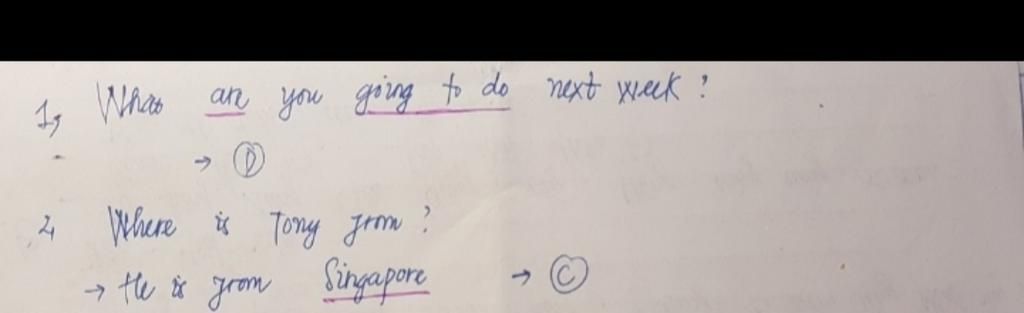 1, What are you going to do next week?
→ D
2, Where is Tony from?
→ He is from Singapore → C